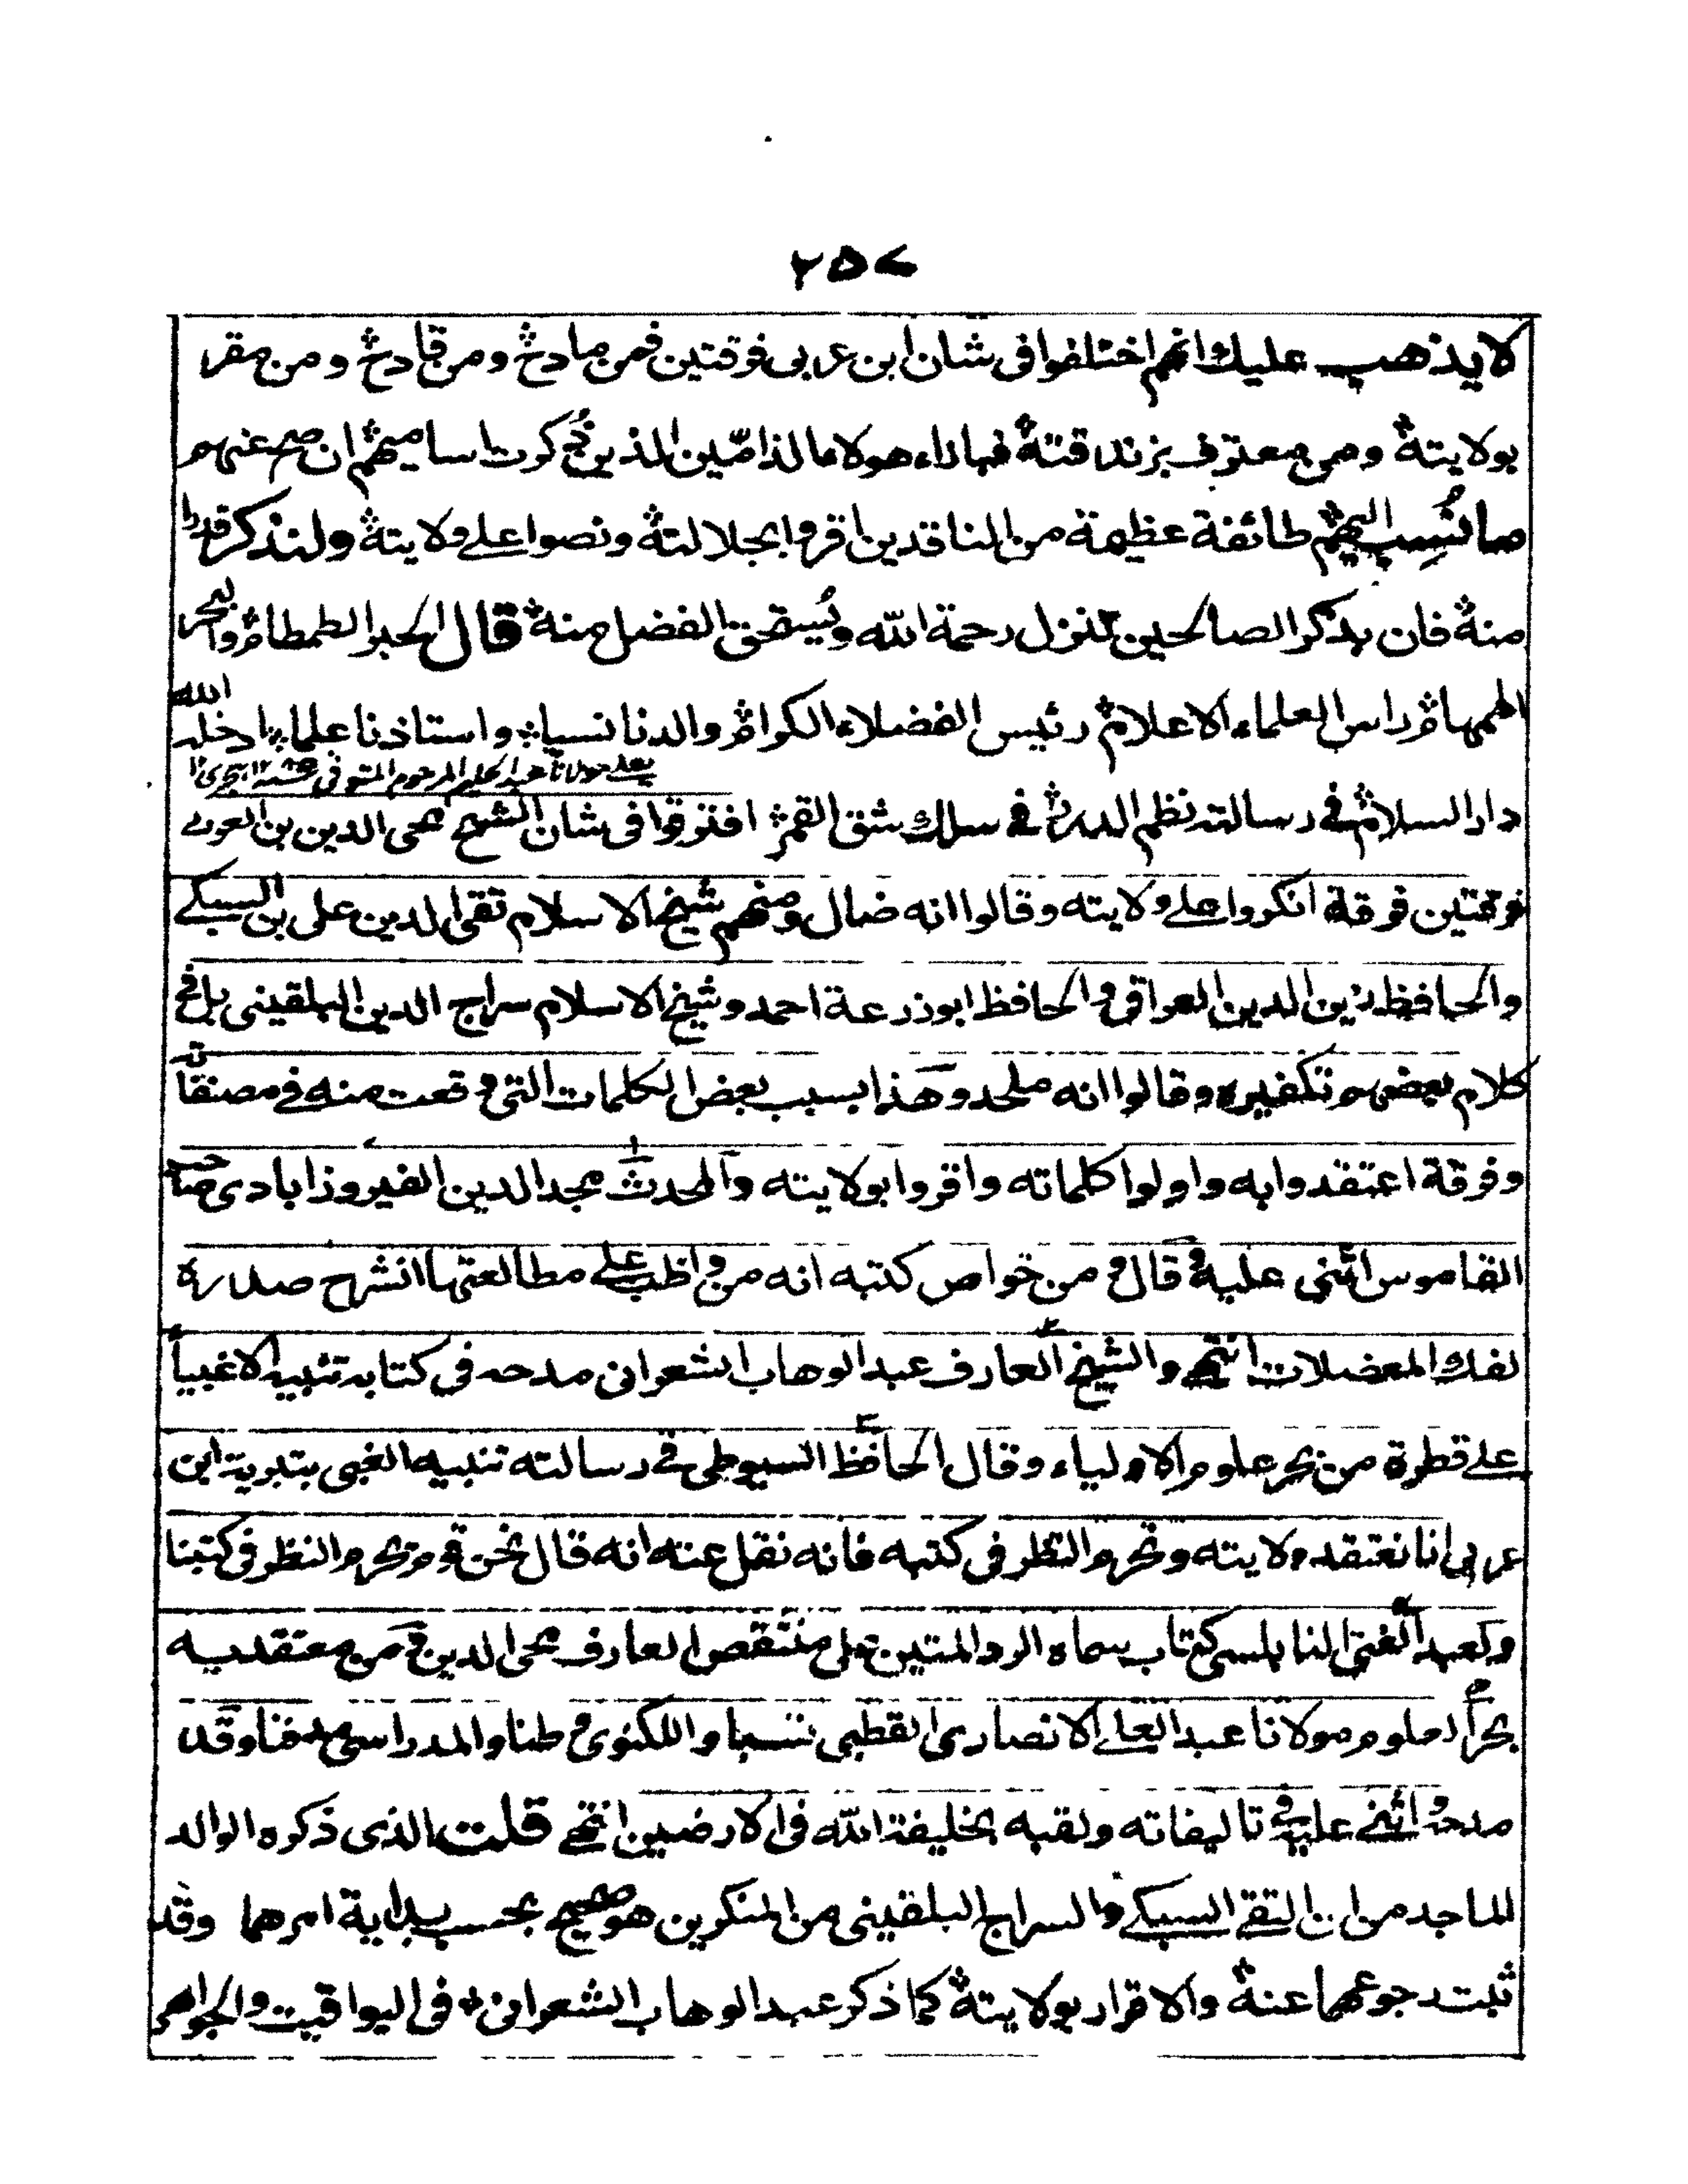 ٢٥٧
لا يذهب عليك انهم اختلفوا فى شان ابن عربى فرقتين فمن مادح ومن قادح ومن مقر
بولايته ومن معترف بزندقته فبازاء هولاء الذامّين الذين ذُكرت اساميهم ان صح عنهم
ما نُسب اليهم طائفة عظيمة من الناقدين اقروا بجلالته ونصوا على ولايته ولنذكر قدرا
منه فان بذكر الصالحين تنزل رحمة الله ويُستحق الفضل منه قال الحبر الطمطام والبحر
الهمهام راس العلماء الاعلام رئيس الفضلاء الكرام والدنا نسبا واستاذنا علما ادخله الله
يعنى مولانا عبد الحليم المرحوم المتوفى
دار السلام فى رسالته نظم الدرر فى سلك شق القمر افترقوا فى شان الشيخ محى الدين بن العربى
فرقتين فرقة انكروا على ولايته وقالوا انه ضال ومنهم شيخ الاسلام تقى الدين على بن السبكى
والحافظ زين الدين العراقى والحافظ ابو زرعة احمد وشيخ الاسلام سراج الدين البلقينى بل فى
كلام بعضهم تكفيره وقالوا انه ملحد وهذا بسبب بعض الكلمات التى وقعت منه فى مصنفاته
وفرقة اعتقدوا به واولوا كلماته واقروا بولايته والمحدث مجد الدين الفيروزابادى صاحب
القاموس اثنى عليه وقال ومن خواص كتبه انه من واظب على مطالعتها انشرح صدره
لفك المعضلات انتهى والشيخ العارف عبد الوهاب الشعرانى مدحه فى كتابه تنبيه الاغبياء
على قطرة من بحر علوم الاولياء وقال الحافظ السيوطى فى رسالته تنبيه الغبى بتبرية ابن
عربى انا نعتقد ولايته ونحرم النظر فى كتبه فانه نقل عنه انه قال نحن قوم نحرم النظر فى كتبنا
ولعبد الغنى النابلسى كتاب سماه الرد المتين على منتقص العارف محى الدين ومن معتقديه
بحر العلوم مولانا عبد العلى الانصارى القطبى نسبا واللكنوى وطنا والمدراسى مدفنا وقد
مدحه واثنى عليه فى تاليفاته ولقبه بخليفة الله فى الارضين انتهى قلت الذى ذكره الوالد
الماجد من ان التقى السبكى والسراج البلقينى من المنكرين هو صحيح بحسب بداية امرهما وقد
ثبت رجوعهما عنه والاقرار بولايته كما ذكر عبد الوهاب الشعرانى فى اليواقيت والجواهر